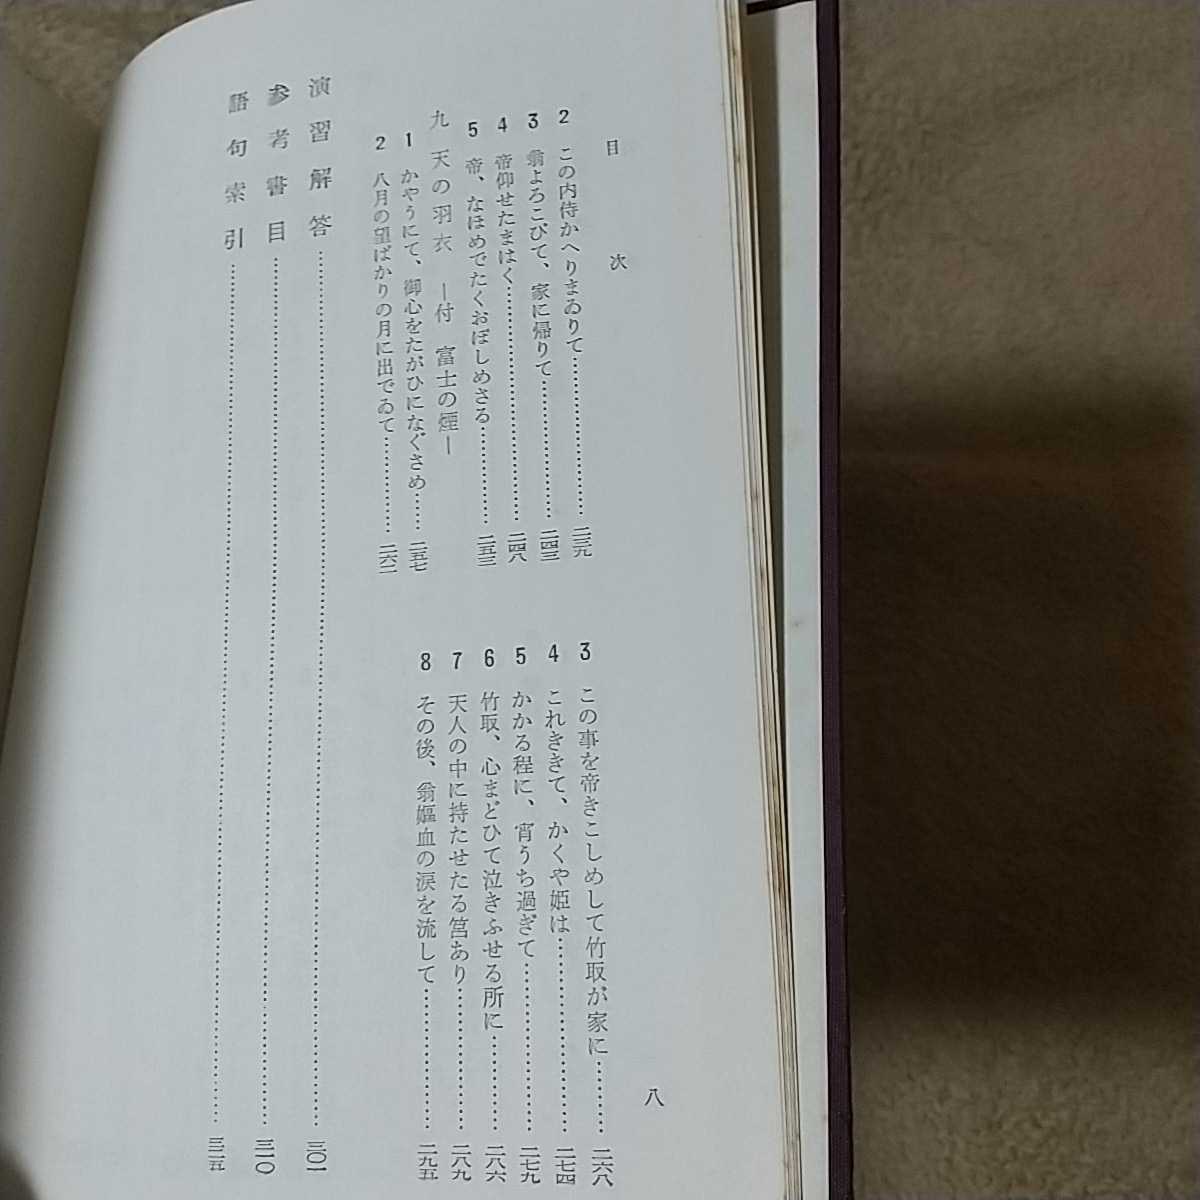 目次
2 この内侍かへりまゐりて……………………二三九
3 翁よろこびて、家に帰りて………………二四三
4 帝仰せたまはく……………………………二四八
5 帝、なほめでたくおぼしめさる…………二五三
九 天の羽衣 ―付 富士の煙―
1 かやうにて、御心をたがひになぐさめ……二五七
2 八月の望ばかりの月に出でゐて…………二六二
3 この事を帝きこしめして竹取が家に………二六八
4 これききて、かくや姫は……………………二七四
5 かかる程に、宵うち過ぎて…………………二七九
6 竹取、心まどひて泣きふせる所に…………二八六
7 天人の中に持たせたる筥あり………………二八九
8 その後、翁嫗血の涙を流して………………二九五
演習解答……………………………………三〇一
参考書目……………………………………三一〇
語句索引……………………………………三三五
八